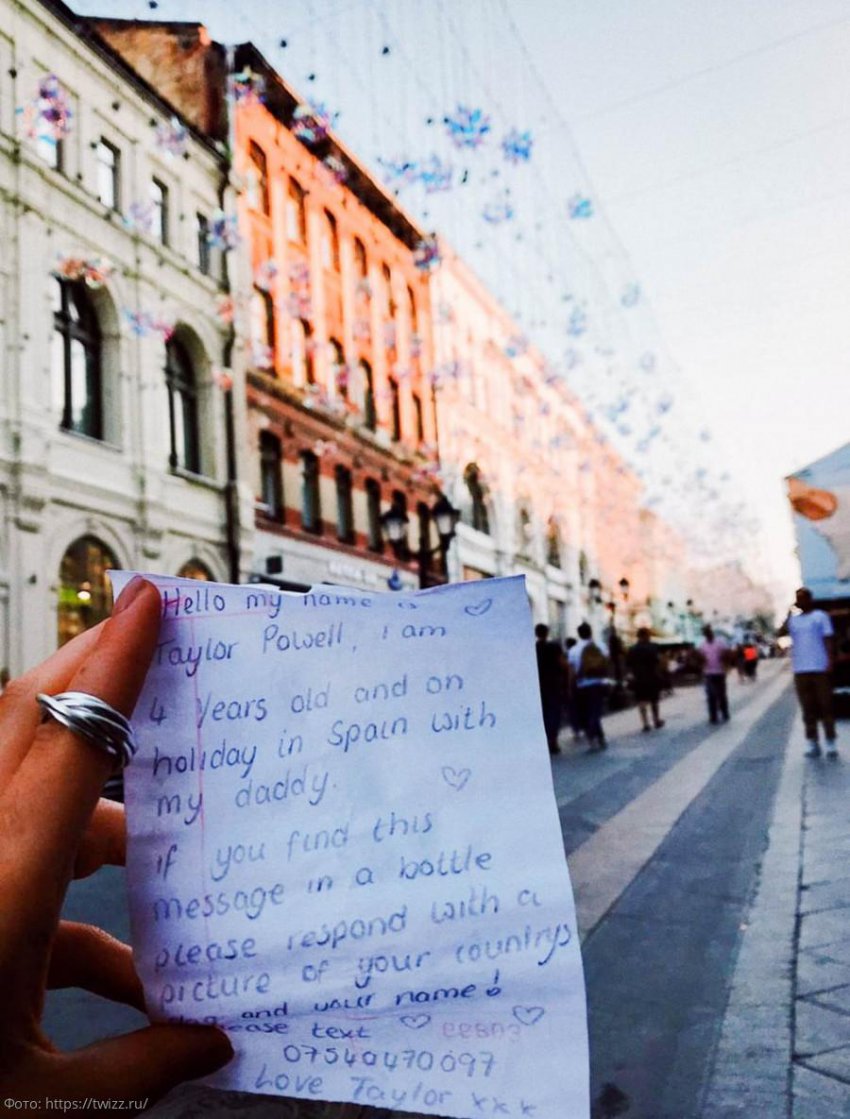 Hello my name is
Taylor Powell, i am
4 years old and on
holiday in Spain with
my daddy.
if you find this
message in a bottle
please respond with a
picture of your countrys
flag and your name!
please text
07540470097
Love Taylor xxx
Фото: https://twizz.ru/